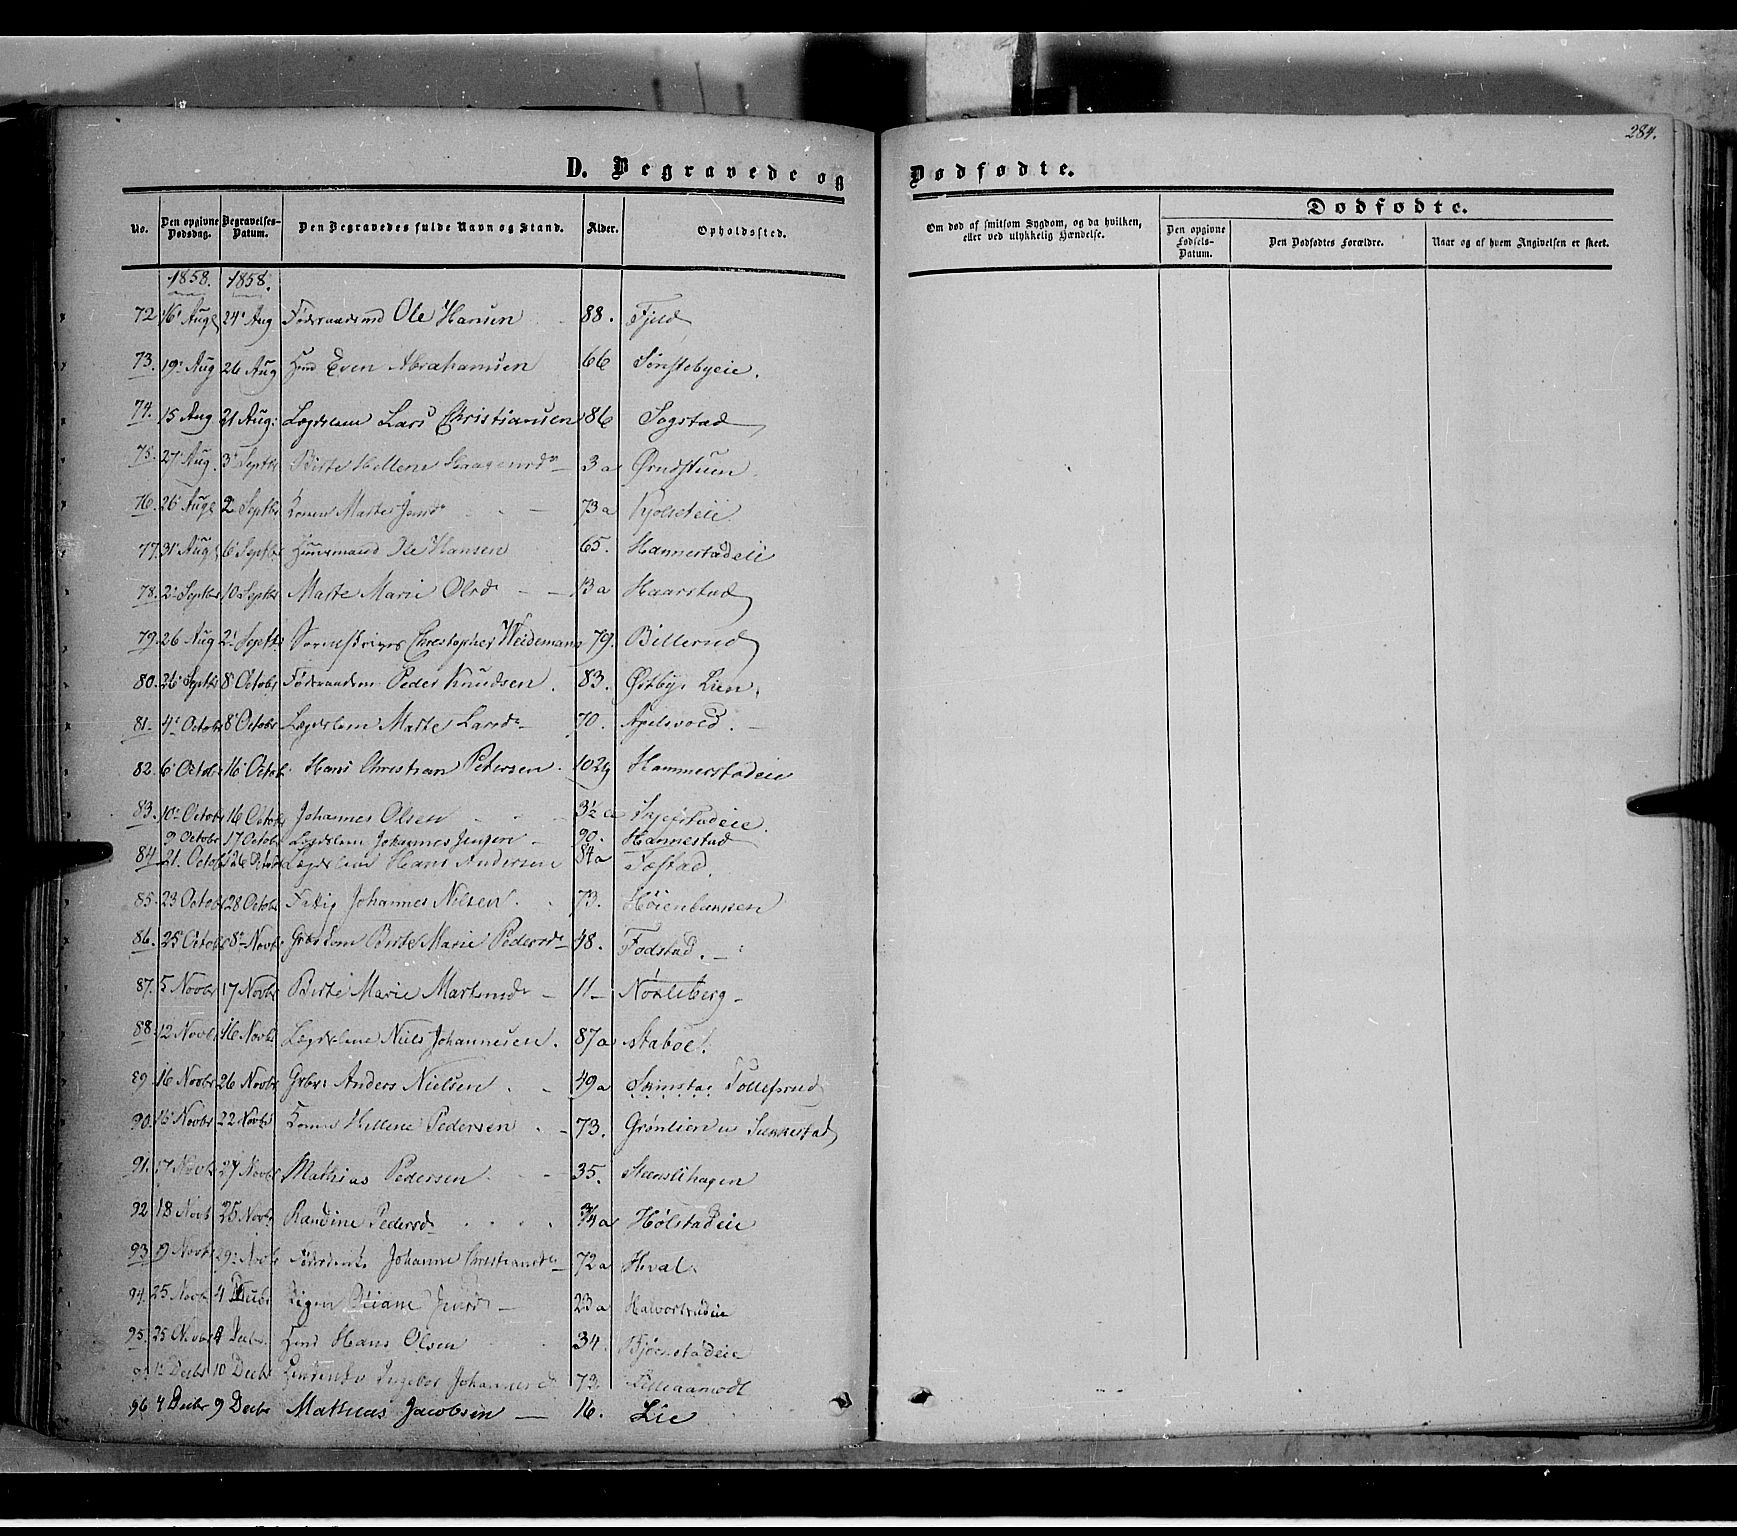 284.
D. Begravede og Dødfødte.
No. Den opgivne Dødsdag. Begravelses-Datum. Den Begravedes fulde Navn og Stand. Alder. Opholdssted.
Om død af smitsom Sygdom, og da hvilken, eller ved ulykkelig Hændelse.
Dødfødte.
Den opgivne Fødsels-Datum. Den Dødfødtes Forældre. Naar og af hvem Angivelsen er skeet.
1858. 1858.
72 16 Aug 24 Aug Ole Hansen 88. Fjeld
73. 19 Aug 26 Aug Even Abrahamsen 66 Sønstebyeie.
74. 15 Aug 21 Aug: Lægdslem Lars Christiansen 86 Sogstad
75. 27 Aug. 3 Septbr Birte Hellene 3 a
76. 26 Aug 2 Septbr Konen Marte 73 a
77. 31 Aug 6 Septbr Huusmand Ole Hansen 65. Hannestadeie
78. 2 Septbr 10 Septbr Marte Marie Olsd 13 a Haarstad
79. 26 Aug 2 Septbr Christopher Weidemann 79. Billerud
80. 26 Septbr 8 Octobr Peder Knudsen. 83. Østby Lien.
81. 4 Octobr 8 Octobr Lægdslem Marte Larsd 70. Apelsvold.
82. 6 Octobr 16 Octobr Hans Christian Petersen. Hammerstadeie
83. 10 Octobr 16 Octobr Johannes Olsen 3½ a Skjefstadeie.
9 Octobr 17 Octobr Lægdslem Johannes Jensen 90. Hannestad
84 21. Octobr 26 Octobr Lægdslem Hans Andersen 84 a
85. 23 Octobr 28 Octobr Fattig Johannes Nilsen 73. Høienbakken
86. 25 Octobr 8 Novbr Birte Marie Pedersd 48. Fodstad.
87. 5 Novbr 17 Novbr Birte Marie Martinsd 11 Nøkleberg
88. 12 Novbr 16 Novbr Lægdslem Niels Johannesen. 87 a Staboe.
89 16 Novbr 26 Novbr Grbr: Anders Nielsen 49 a Tollefsrud
90. 16 Novbr 22 Novbr Konen Hellene Pedersen 73. Grønlien
91. 17 Novbr 27 Novbr Mathias Pedersen 35. Steenslihagen
92 18 Novb 25 Novbr Randine Pedersd ¾ a Hølstadeie
93. 19 Novbr 29 Novbr Johanne Christiansd 72 a Hval.
94. 25 Novbr 4 Pigen 23 a Halvorsrudeie
95. 25 Novbr Decbr Hans Olsen 34. Bjørnstadeie
1 Decbr 10 Decbr Ingebor Johannesd 73
96 4 Decbr 9 Decbr Mathias Jacobsen 16. Lie